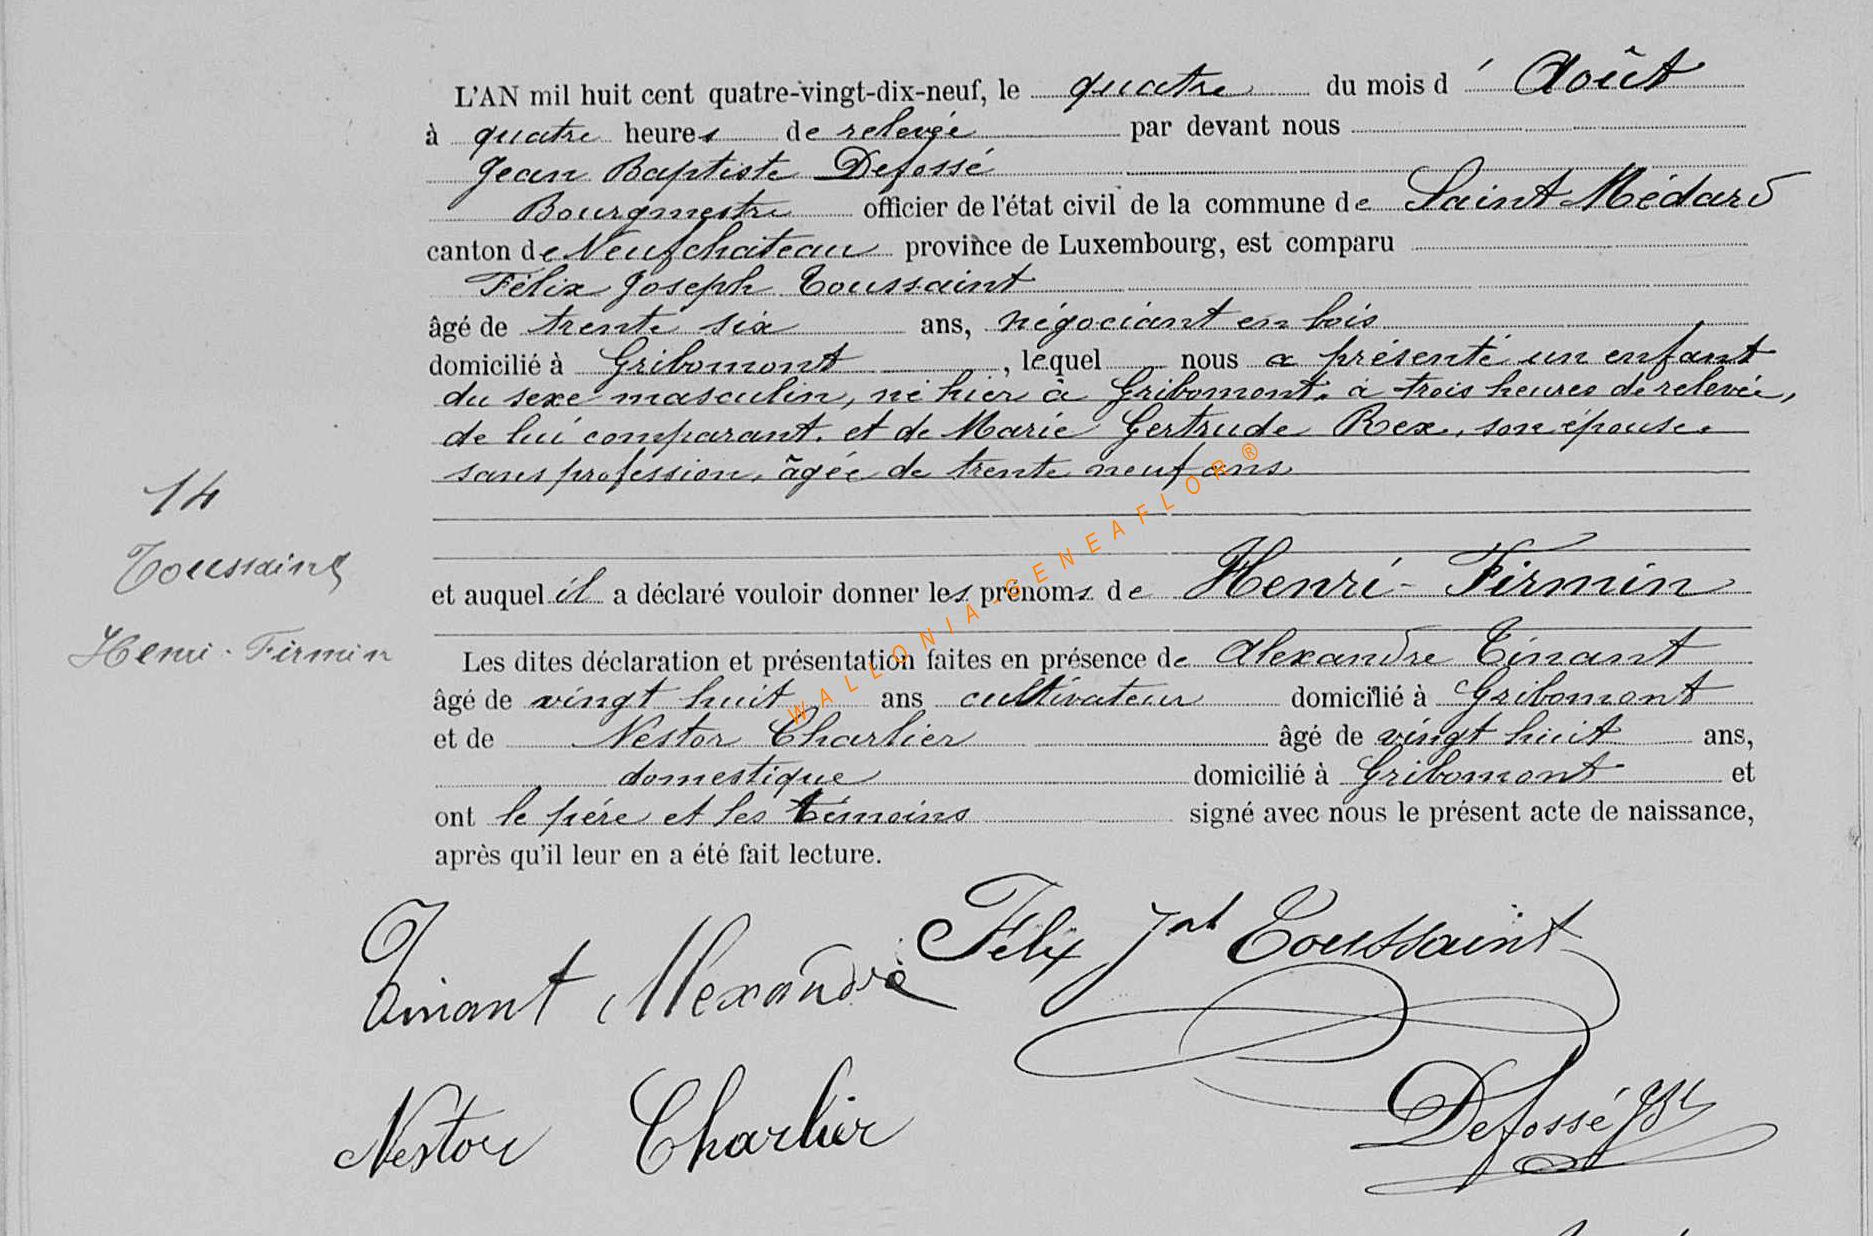 L'AN mil huit cent quatre-vingt-dix-neuf, le quatre du mois d' Août
à quatre heures de relevée par devant nous
Jean Baptiste Defossé
Bourgmestre officier de l'état civil de la commune de Saint Médard
canton de Neufchateau province de Luxembourg, est comparu
Félix Joseph Toussaint
âgé de trente six ans, négociant en bois
domicilié à Gribomont, lequel nous a présenté un enfant
du sexe masculin, né hier à Gribomont, à trois heures de relevée,
de lui comparant, et de Marie Gertrude Rex, son épouse,
sans profession, âgée de trente neuf ans
14
Toussaint
Henri-Firmin
et auquel il a déclaré vouloir donner les prénoms de Henri-Firmin
Les dites déclaration et présentation faites en présence de Alexandre Tinant
âgé de vingt huit ans cultivateur domicilié à Gribomont
et de Nestor Charlier âgé de vingt huit ans,
domestique domicilié à Gribomont et
ont le père et les témoins signé avec nous le présent acte de naissance,
après qu'il leur en a été fait lecture.
Tinant Alexandre
Félix Jph Toussaint
Nestor Charlier
Defossé JB
WALLONIA-GENEAFLOR®